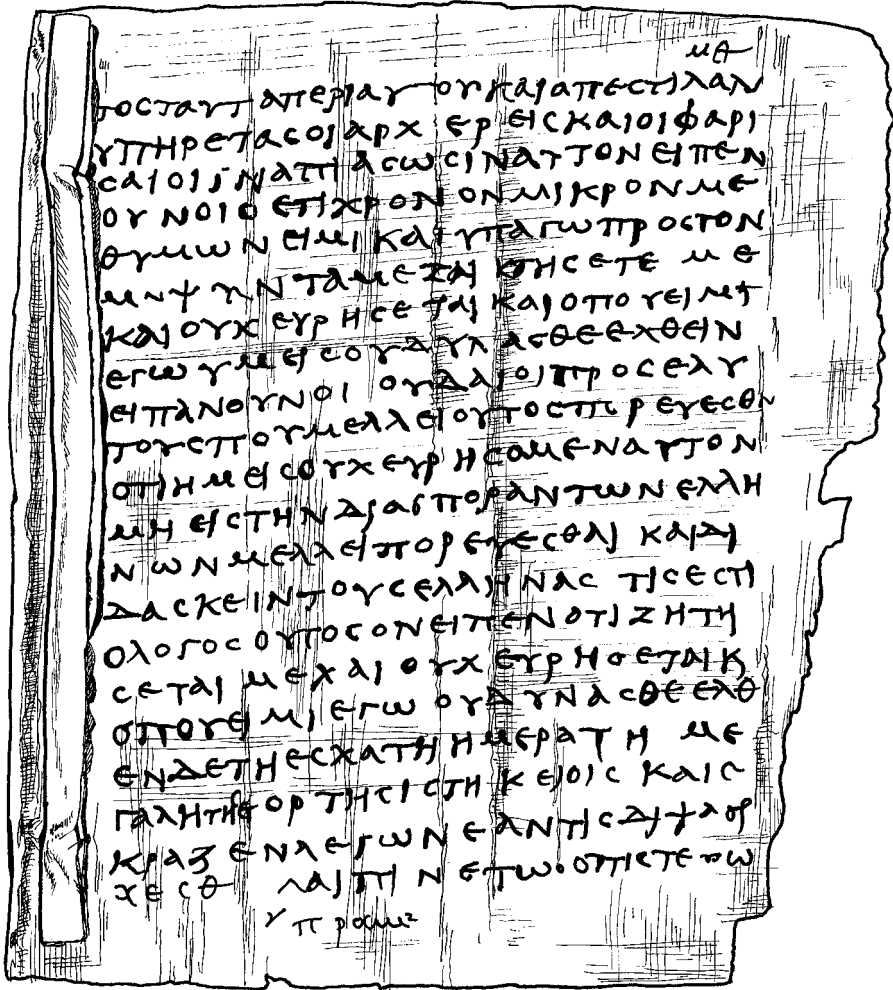 μθ
τοσταυταπεριαυτουκαιαπεστιλαν
υπηρετασοιαρχ ερεισκαιοιφαρι
σαιοιϊναπιασωσιναυτονειπεν
ουνοιο ετιχρονονμικρονμε
θυμωνειμικαιυπαγωπροστον
μνψυνταμεζαικτησετε με
καιουχευρησεταικαιοπουειμι
εγωυμεισουδυνασθεεχθειν
ειπανουνοι ουδαιοιπροσελυ
τουσπουμελλειουτοσπορευεσθν
οτιημεισουχευρησομεναυτον
μηειστηνδιασποραντωνελλη
νωνμελλειπορευεσθαι καιδι
δασκειντουσελληνασ τισεστι
ολογοσουτοσονειπενοτιζητη
σεταιμεχαιουχευρησεταικ
οπουειμιεγωουδυνασθεελθ
ενδετηεσχατηημερατη με
γαλητηεορτησιστηκειοισ καισ
κραζενλεγωνεαντισδιψαερ
χεσθ λαιπινετω·οπιστευω
υ προσμε